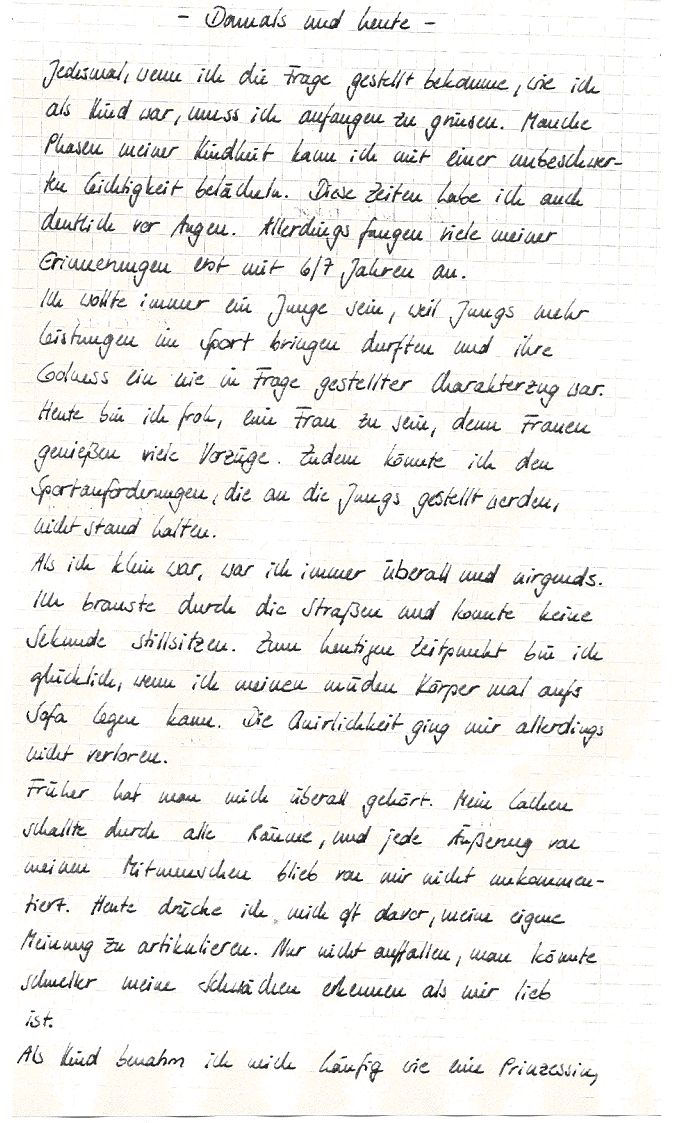 - Damals und heute -
Jedesmal, wenn ich die Frage gestellt bekomme, wie ich
als Kind war, muss ich anfangen zu grinsen. Manche
Phasen meiner Kindheit kann ich mit einer unbeschwer-
ten Leichtigkeit belächeln. Diese Zeiten habe ich auch
deutlich vor Augen. Allerdings fangen viele meiner
Erinnerungen erst mit 6/7 Jahren an.
Ich wollte immer ein Junge sein, weil Jungs mehr
Leistungen im Sport bringen durften und ihre
Coolness ein nie in Frage gestellter Charakterzug war.
Heute bin ich froh, eine Frau zu sein, denn Frauen
genießen viele Vorzüge. Zudem könnte ich den
Sportanforderungen, die an die Jungs gestellt werden,
nicht stand halten.
Als ich klein war, war ich immer überall und nirgends.
Ich brauste durch die Straßen und konnte keine
Sekunde stillsitzen. Zum heutigen Zeitpunkt bin ich
glücklich, wenn ich meinen müden Körper mal aufs
Sofa legen kann. Die Quirlichkeit ging mir allerdings
nicht verloren.
Früher hat man mich überall gehört. Mein Lachen
schallte durch alle Räume, und jede Äußerung von
meinen Mitmenschen blieb von mir nicht unkommen-
tiert. Heute drücke ich mich oft davor, meine eigene
Meinung zu artikulieren. Nur nicht auffallen, man könnte
schneller meine Schwächen erkennen als mir lieb
ist.
Als Kind benahm ich mich häufig wie eine Prinzessin,